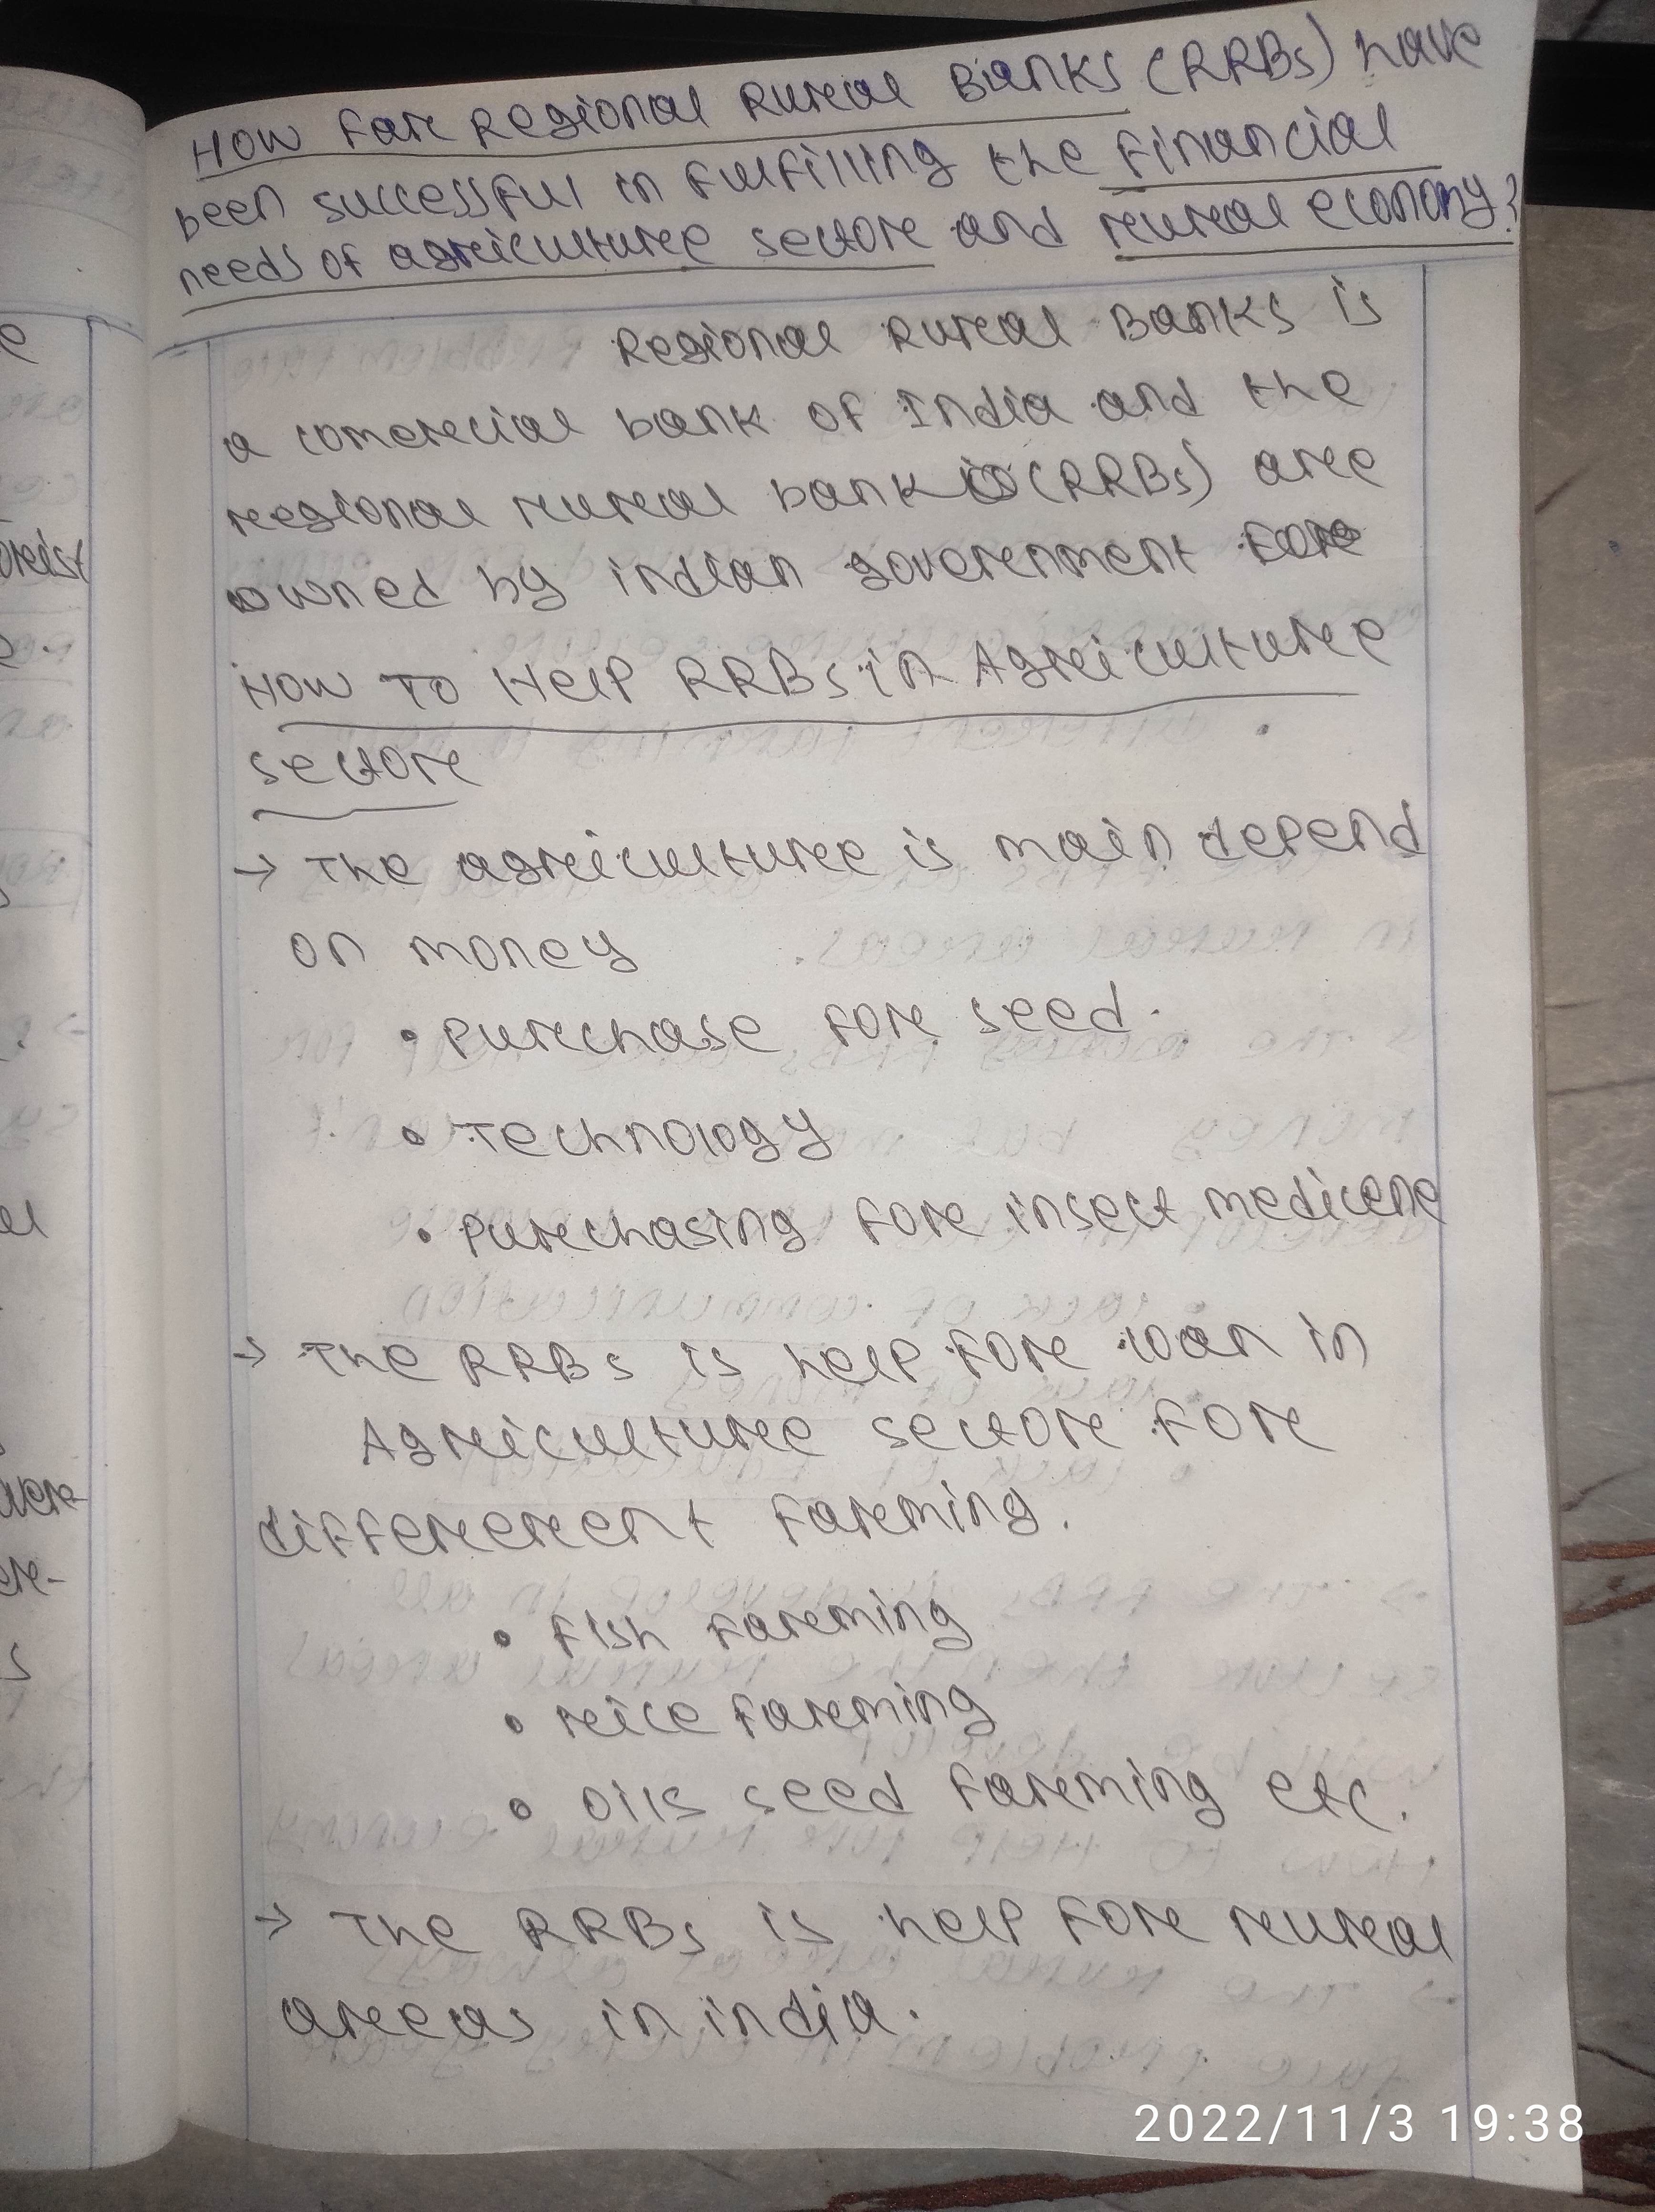 How far Regional Rural Banks (RRBs) have
been successful in fulfilling the financial
needs of agriculture sector and rural economy?
Regional Rural Banks is
a comercial bank of India and the
regional rural bank (RRBs) are
owned by indian goverenment for
How To Help RRBs in Agriculture
sector
→ The agriculture is main depend
on money
• purchase for seed.
• Technology
• purchasing for insect medicene
→ The RRBs is help for loan in
Agriculture sector for
differerent farming.
• fish farming
• rice farming
• oils seed farming etc.
→ The RRBs is help for rural
areas in india.
2022/11/3 19:38